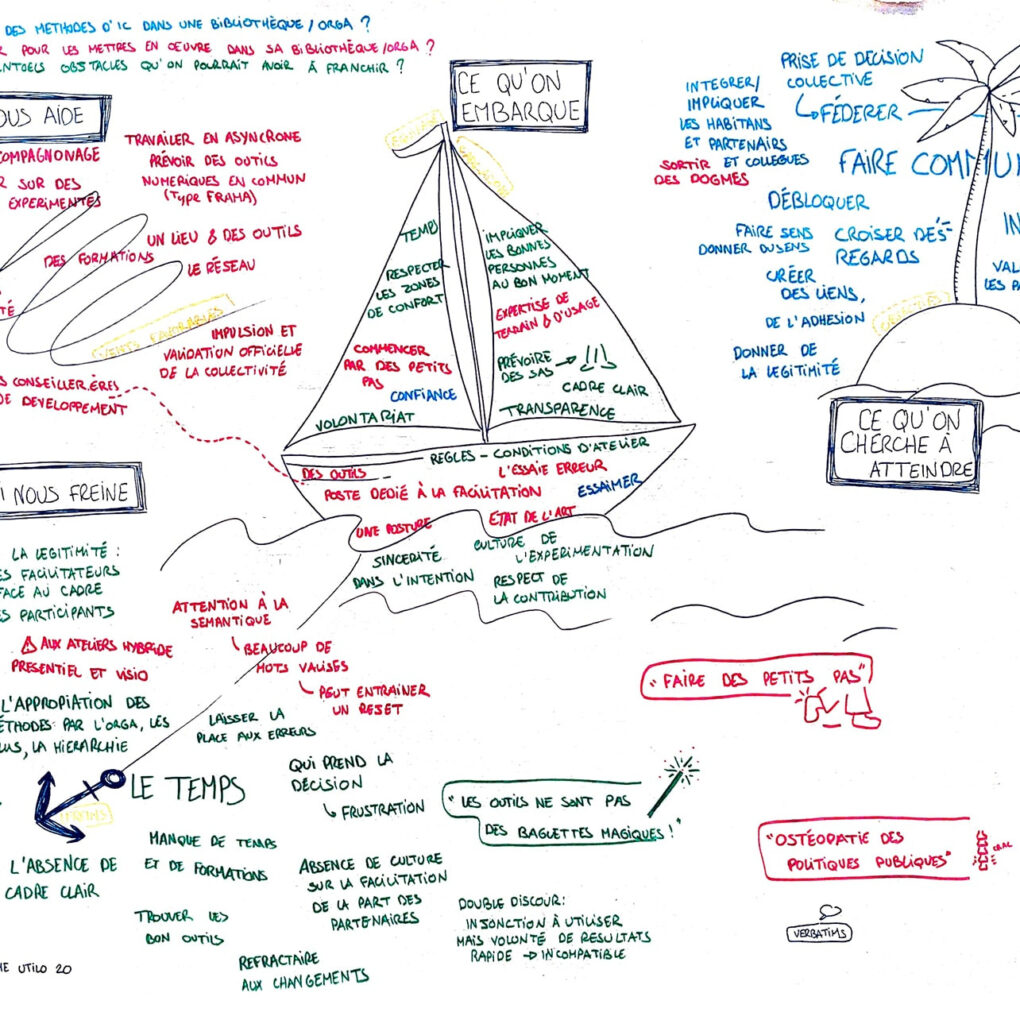 DES METHODES D'IC DANS UNE BIBLIOTHÈQUE/ORGA ?
R POUR LES METTRES EN OEUVRE DANS SA BIBLIOTHÈQUE/ORGA ?
NTUELS OBSTACLES QU'ON POURRAIT AVOIR À FRANCHIR ?
OUS AIDE
COMPAGNONAGE
R SUR DES
EXPERIMENTÉS
TRAVAILER EN ASYNCRONE
PRÉVOIR DES OUTILS
NUMERIQUES EN COMMUN
(TYPE FRAMA)
UN LIEU & DES OUTILS
DES FORMATIONS
LE RÉSEAU
TÉ
VENTS FAVORABLES
IMPULSION ET
VALIDATION OFFICIELLE
DE LA COLLECTIVITÉ
S CONSEILLER.ÈRES
DE DEVELOPPEMENT
CE QU'ON
EMBARQUE
TEMPS
RESPECTER
LES ZONES
DE CONFORT
COMMENCER
PAR DES PETITS
PAS
CONFIANCE
VOLONTARIAT
IMPLIQUER
LES BONNES
PERSONNES
AU BON MOMENT
EXPERTISE DE
TERRAIN & D'USAGE
PRÉVOIRE
DES SAS
CADRE CLAIR
TRANSPARENCE
REGLES - CONDITIONS D'ATELIER
DES OUTILS
L'ESSAIE ERREUR
POSTE DEDIÉ À LA FACILITATION
ESSAIMER
UNE POSTURE
ÉTAT DE L'ART
SINCERITÉ
DANS L'INTENTION
CULTURE DE
L'EXPERIMENTATION
RESPECT DE
LA CONTRIBUTION
PRISE DE DÉCISION
COLLECTIVE
FÉDERER
INTEGRER/
IMPLIQUER
LES HABITANS
ET PARTENAIRS
ET COLLEGUES
SORTIR
DES DOGMES
FAIRE COMMU
DÉBLOQUER
FAIRE SENS
DONNER DU SENS
CROISER DES
REGARDS
CRÉER
DES LIENS,
DE L'ADHESION
DONNER DE
LA LEGITIMITÉ
IN
VAL
LES PA
CE QU'ON
CHERCHE À
ATTEINDRE
I NOUS FREINE
LA LEGITIMITÉ :
ES FACILITATEURS
FACE AU CADRE
ES PARTICIPANTS
⚠ AUX ATELIERS HYBRIDE
PRESENTIEL ET VISIO
L'APPROPIATION DES
ÉTHODES PAR L'ORGA, LES
LUS, LA HIERARCHIE
ATTENTION À LA
SEMANTIQUE
BEAUCOUP DE
MOTS VALISES
PEUT ENTRAINER
UN REJET
LAISSER LA
PLACE AUX ERREURS
LE TEMPS
FREINS
L'ABSENCE DE
CADRE CLAIR
MANQUE DE TEMPS
ET DE FORMATIONS
TROUVER LES
BON OUTILS
REFRACTAIRE
AUX CHANGEMENTS
QUI PREND LA
DÉCISION
FRUSTRATION
ABSENCE DE CULTURE
SUR LA FACILITATION
DE LA PART DES
PARTENAIRES
"LES OUTILS NE SONT PAS
DES BAGUETTES MAGIQUES !"
DOUBLE DISCOUR:
INJONCTION À UTILISER
MAIS VOLONTÉ DE RESULTATS
RAPIDE → INCOMPATIBLE
"FAIRE DES PETITS PAS"
"OSTÉOPATIE DES
POLITIQUES PUBLIQUES"
CRAC
VERBATIMS
HE UTILO 20